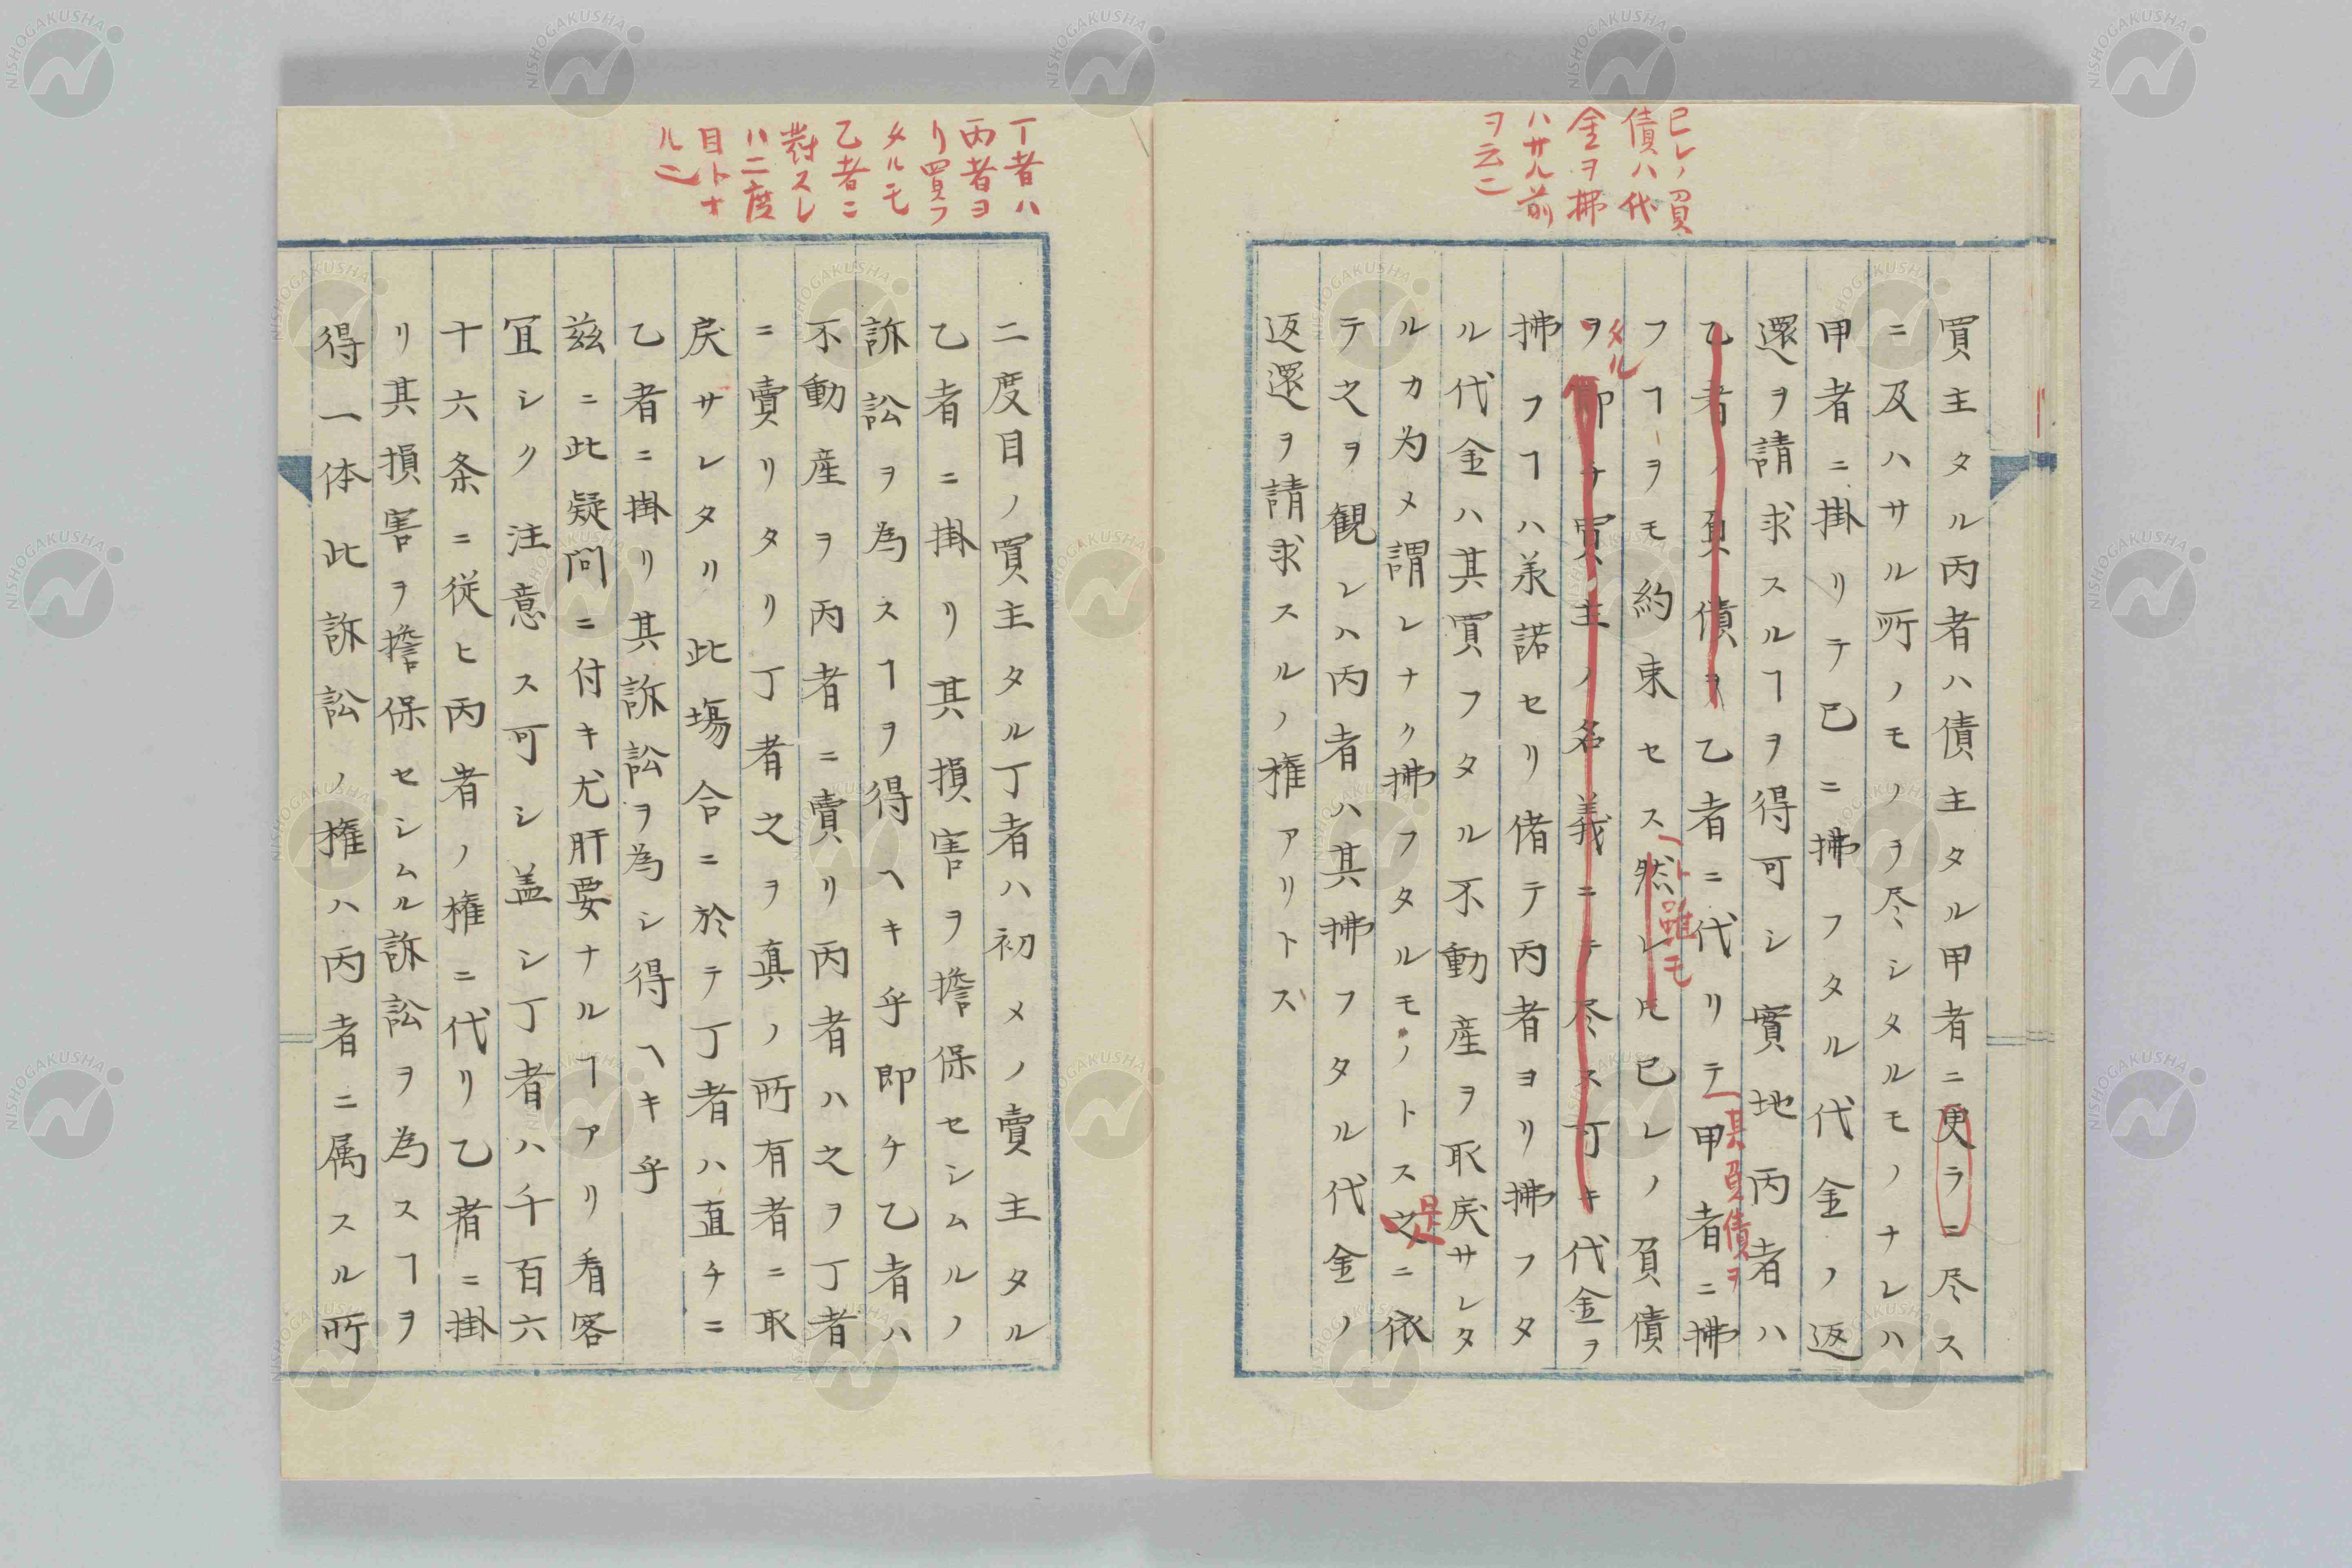 已レノ負
債ハ代
金ヲ拂
ハサル前
ヲ云フ
買主タル丙者ハ債主タル甲者ニ更ラニ尽ス
ニ及ハサル所ノモノヲ尽シタルモノナレハ
甲者ニ掛リテ已ニ拂フタル代金ノ返
還ヲ請求スルヿヲ得可シ實地丙者ハ
乙者ノ負債ヲ乙者ニ代リテ甲者ニ拂
其負債ヲ
フヿヲモ約束セス然レ𪜈已レノ負債
ト雖モ
タル
ヲ即チ買主ノ名義ニテ尽ス可キ代金ヲ
拂フヿハ羕諾セリ偖テ丙者ヨリ拂フタ
ル代金ハ其買フタル不動産ヲ取戻サレタ
ルカ為メ謂レナク拂フタルモノトス之ニ依
是
テ之ヲ観レハ丙者ハ其拂フタル代金ノ
返還ヲ請求スルノ権アリトス
丁者ハ
丙者ヨ
リ買フ
タルモ
乙者ニ
對スレ
ハ二度
目トナ
ル
二度目ノ買主タル丁者ハ初メノ賣主タル
乙者ニ掛リ其損害ヲ擔保セシムルノ
訴訟ヲ為スヿヲ得ヘキ乎即チ乙者ハ
不動産ヲ丙者ニ賣リ丙者ハ之ヲ丁者
ニ賣リタリ丁者之ヲ真ノ所有者ニ取
戻サレタリ此塲合ニ於テ丁者ハ直チニ
乙者ニ掛リ其訴訟ヲ為シ得ヘキ乎
茲ニ此疑問ニ付キ尤肝要ナルヿアリ看客
冝シク注意ス可シ盖シ丁者ハ千百六
十六条ニ従ヒ丙者ノ権ニ代リ乙者ニ掛
リ其損害ヲ擔保セシムル訴訟ヲ為スヿヲ
得一体此訴訟ノ権ハ丙者ニ属スル所